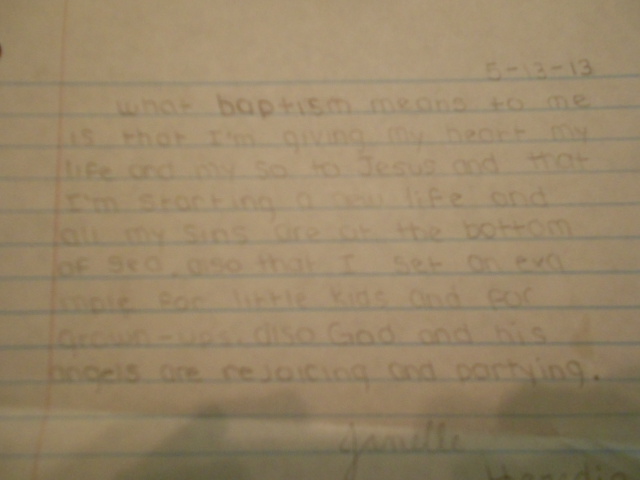 5-13-13
what baptism means to me
is that I'm giving my heart my
life and my so to Jesus and that
I'm starting a new life and
all my sins are at the bottom
of sea. also that I set an exa
mple for little kids and for
grown-ups. also God and his
angels are rejoicing and partying.
Janelle
Heredia